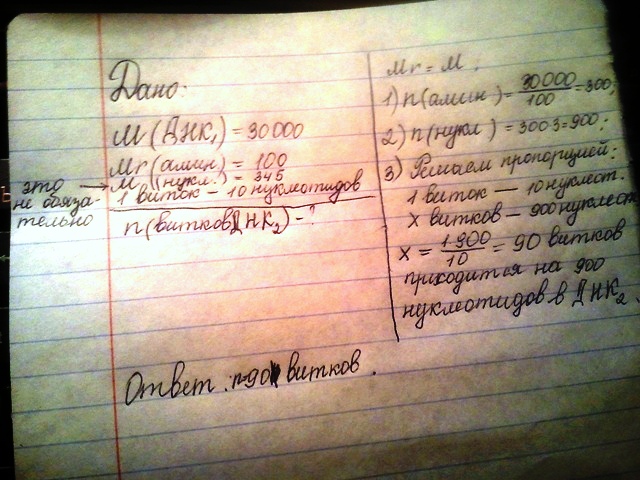 Дано:
М (ДНК₁) = 30000
Mr (амин) = 100
М (нукл.) = 345
1 виток - 10 нуклеотидов
n (витков ДНК₂) - ?
это →
не обяза-
тельно
Mr = М.
1) n (амин) = 30000/100 = 300;
2) n (нукл) = 300·3=900;
3) Решаем пропорцией:
1 виток — 10 нуклеот.
х витков — 900 нуклеот
х = 1·900/10 = 90 витков
приходится на 900
нуклеотидов в ДНК₂
Ответ: n=90 витков.